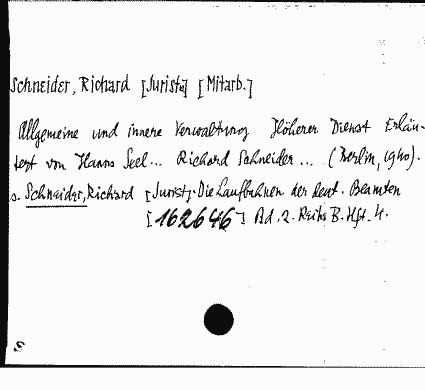 Schneider, Richard [Jurist] [Mitarb.]
Allgemeine und innere Verwaltung Höherer Dienst Erläu-
tert von Hanns Seel... Richard Schneider ... (Berlin, 1940).
s. Schneider, Richard [Jurist]. Die Laufbahnen der deut. Beamten
[162646] Bd. 2. Reihe B. Hft. 4.